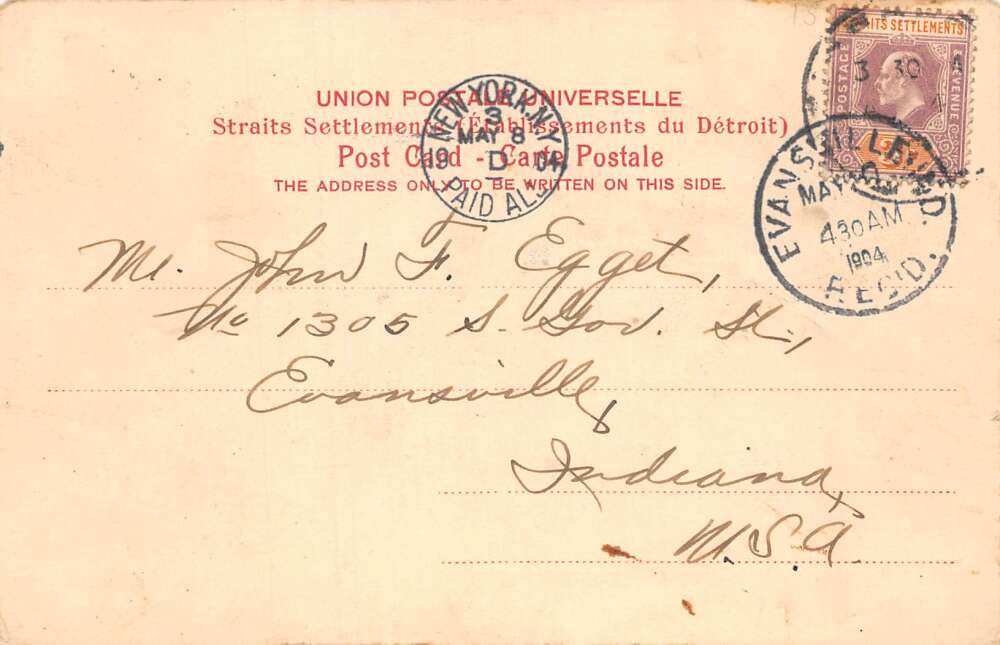 STRAITS SETTLEMENTS
POSTAGE
& REVENUE
3 30 A
UNION POSTALE UNIVERSELLE
Straits Settlements (Établissements du Détroit)
Post Card - Carte Postale
THE ADDRESS ONLY TO BE WRITTEN ON THIS SIDE.
NEW YORK, N.Y.
3
MAY 8
19 D 04
PAID ALL
EVANSVILLE, IND.
MAY
430 AM
1904
REC'D.
Mr. John F. Egget,
No 1305 S. Gov. St.,
Evansville,
Indiana,
U.S.A.